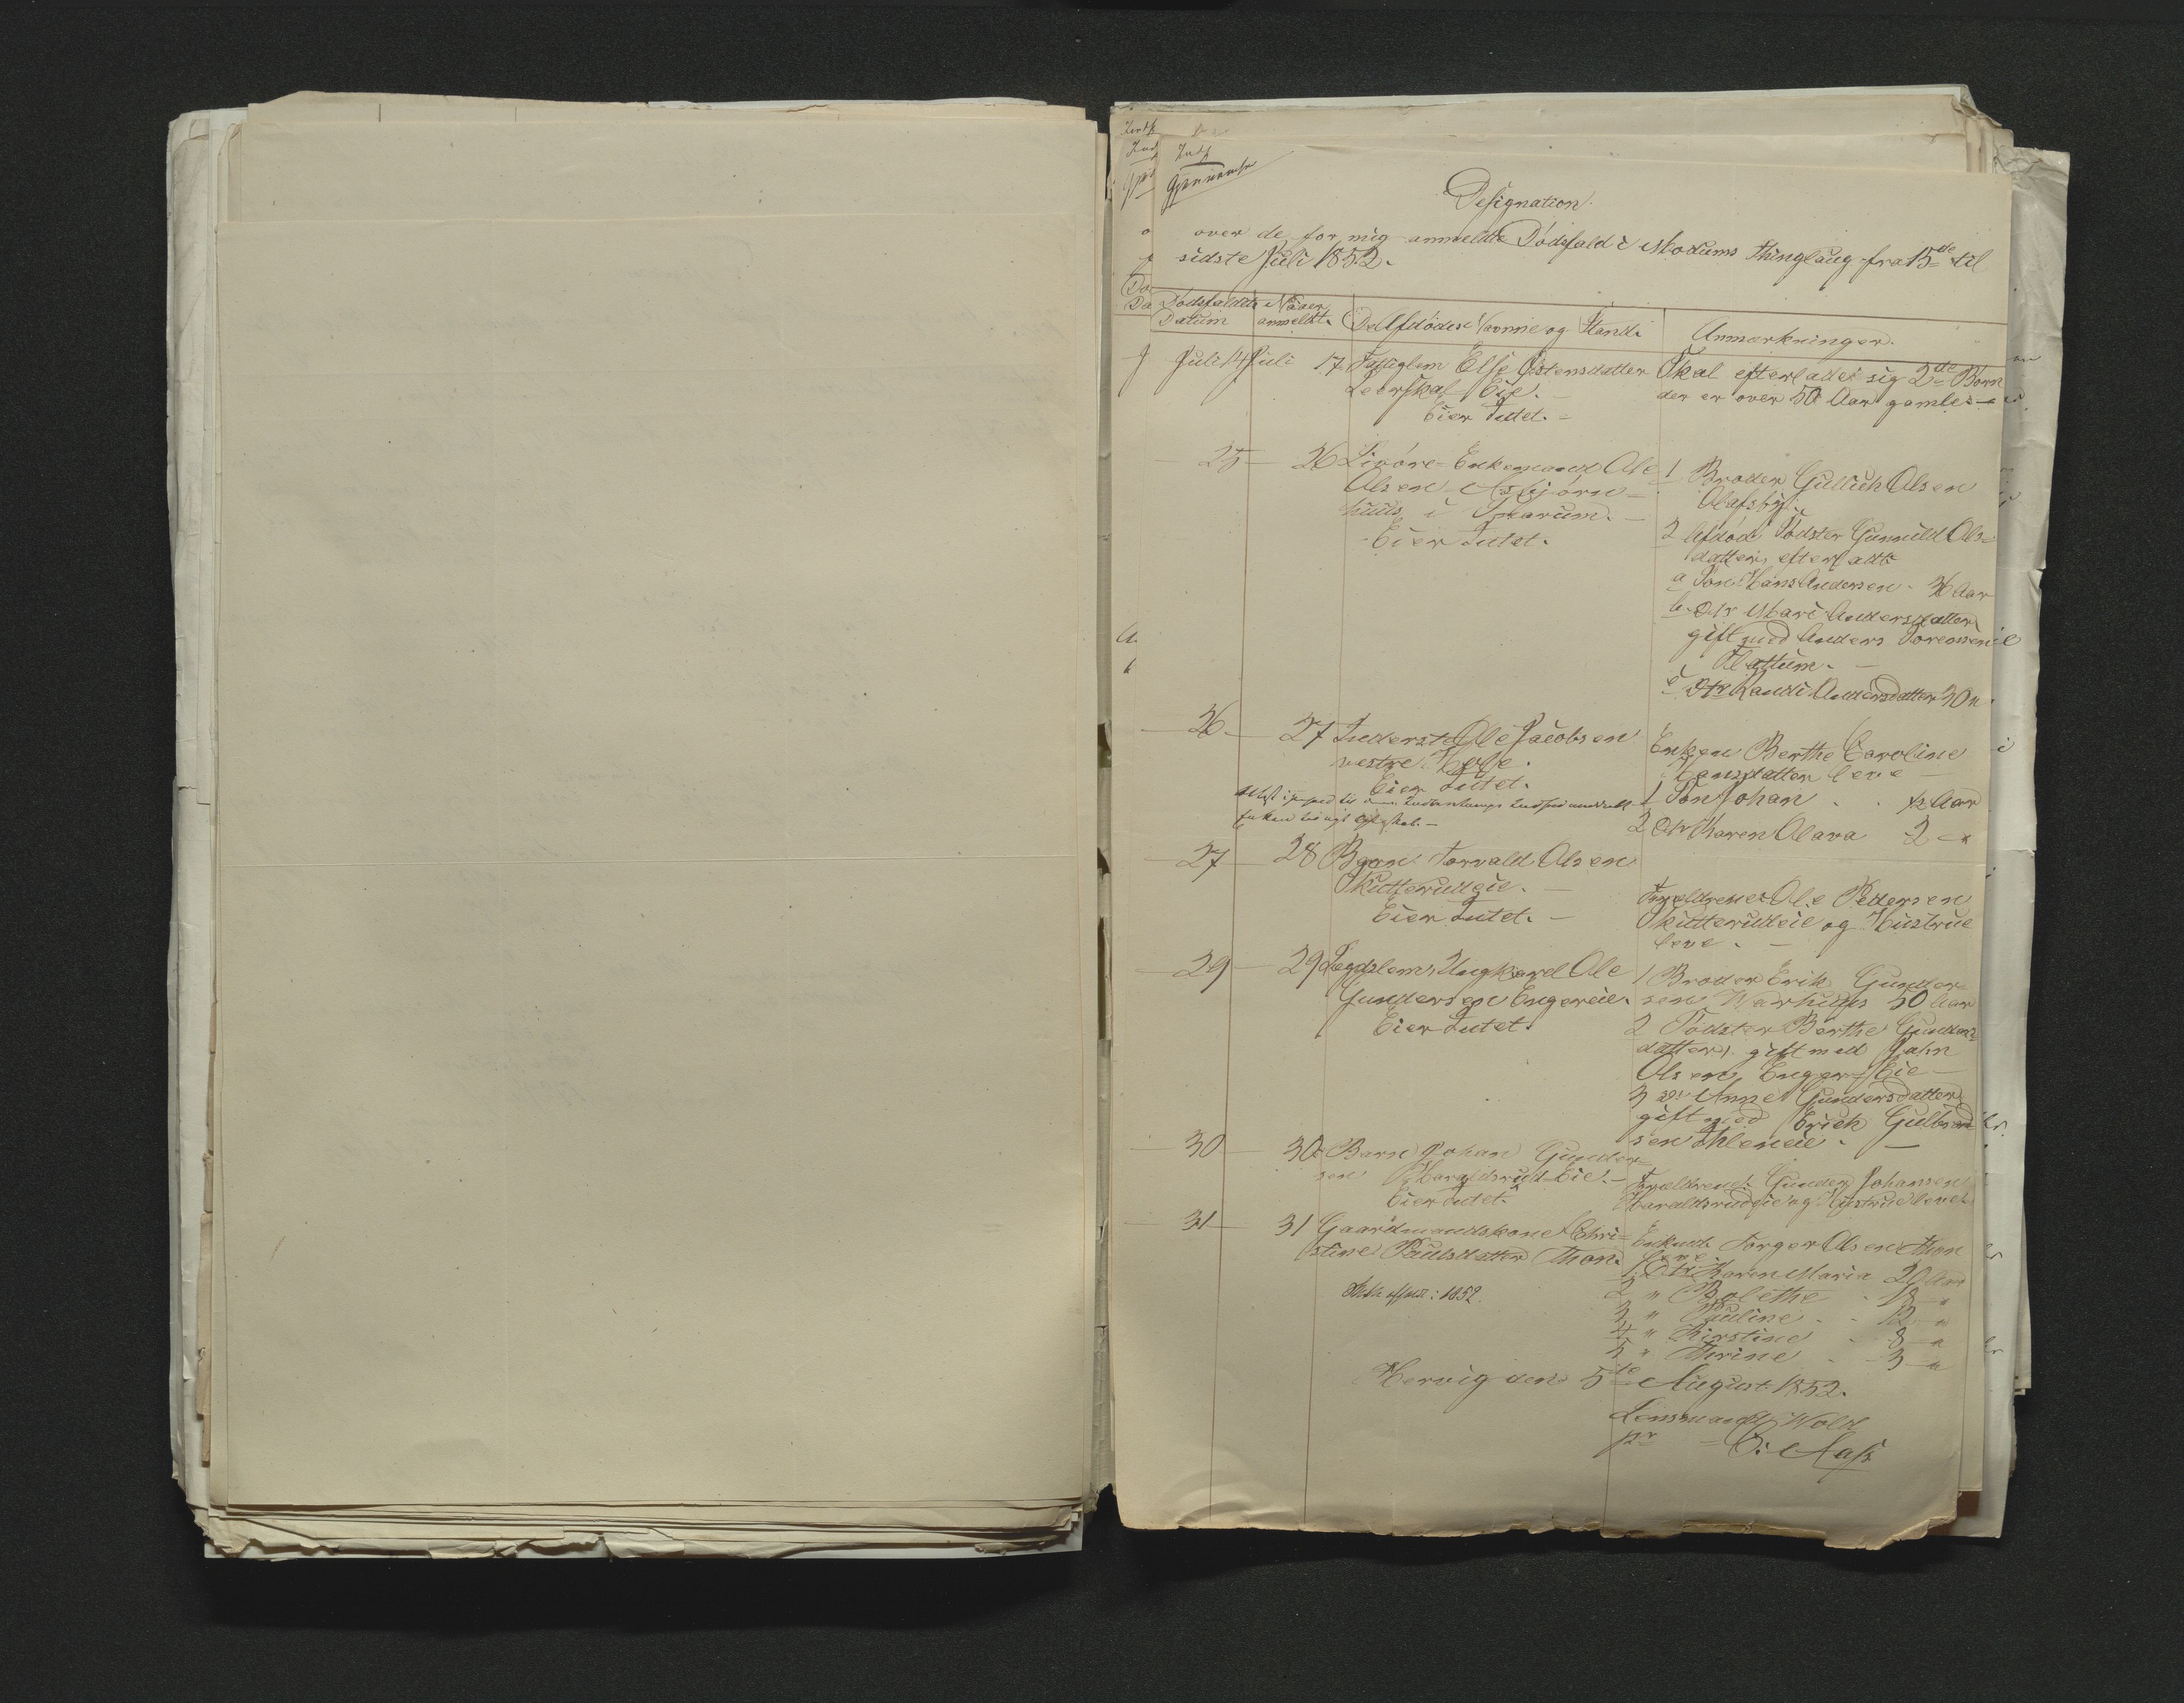 Designation.
over de for mig anmeldte Dødsfald i Modums Thinglaug fra 15de til
sidste Juli 1852.
Dødsfaldets Datum
Naaer anmeldt.
De Afdødes Navne og Stand.
Anmærkninger.
Juli 14 Juli 17 Fattiglem Else Østensdatter
Leerskal Eie.
Eier Intet.
Skal efterladet sig 2de Børn
der er over 50 Aar gamle.
25 26 Livøre-Enkemand Ole
Olsen Asbjørn-
huus i Snarum.
Eier Intet.
1 Broder Gullich Olsen
Olafsby.
2 Afdød Södster Gunnild Ols-
datters efterladte
a Søn Hans Andersen 36 Aar
b Dtr Mari Andersdatter
gift med Anders Sørensen
Flattum.
c Dtr Randi Andersdatter 30 "
26 27 Inderst Ole Jacobsen
vestre Hole.
Eier Intet.
Enken Berthe Caroline
Hansdatter leve
1 Søn Johan ½ Aar
2 Dtr Karen Olava 2 "
27 28 Barn Torvald Olsen
Skutterudeie.
Eier Intet.
Forældrene Ole Pedersen
Skutterudeie og Hustrue
leve.
29 29 Lægdslem, Ungkarl Ole
Gundersen Engereie.
Eier Intet.
1 Broder Erik Gunder-
sen Warhuus 50 Aar
2 Södster Berthe Gunders-
datter, gift med John
Olsen Enger Eie
3 do Anne Gundersdatter
gift med Erich Gulbrand-
sen Ihleneie.
30 30 Barn Johan Gunder-
sen Haraldsrud Eie.
Eier Intet.
Forældrene Gunder Johansen
Haraldsrudeie og Hustrue leve
31 31 Gaardmandskone Chri-
stine Paulsdatter Thon.
Enkem. Torger Olsen Thon
leve.
1 Dtr Karen Maria 20 Aar
2 " Bolethe 18 "
3 " Pauline 12 "
4 " Kirstine 8 "
5 " Thrine 3 "
Hervig den 5te August 1852.
Lensmand Wold
pr